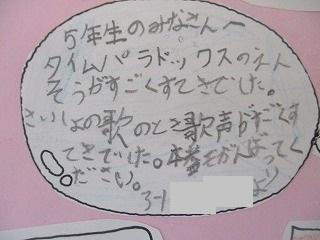 5年生のみなさんへ
タイムパラドックスのネト
そうがすごくすてきでした。
さいしょの歌のとき歌声がすごくす
てきでした。本番もがんばってく
ださい。
3-1 より